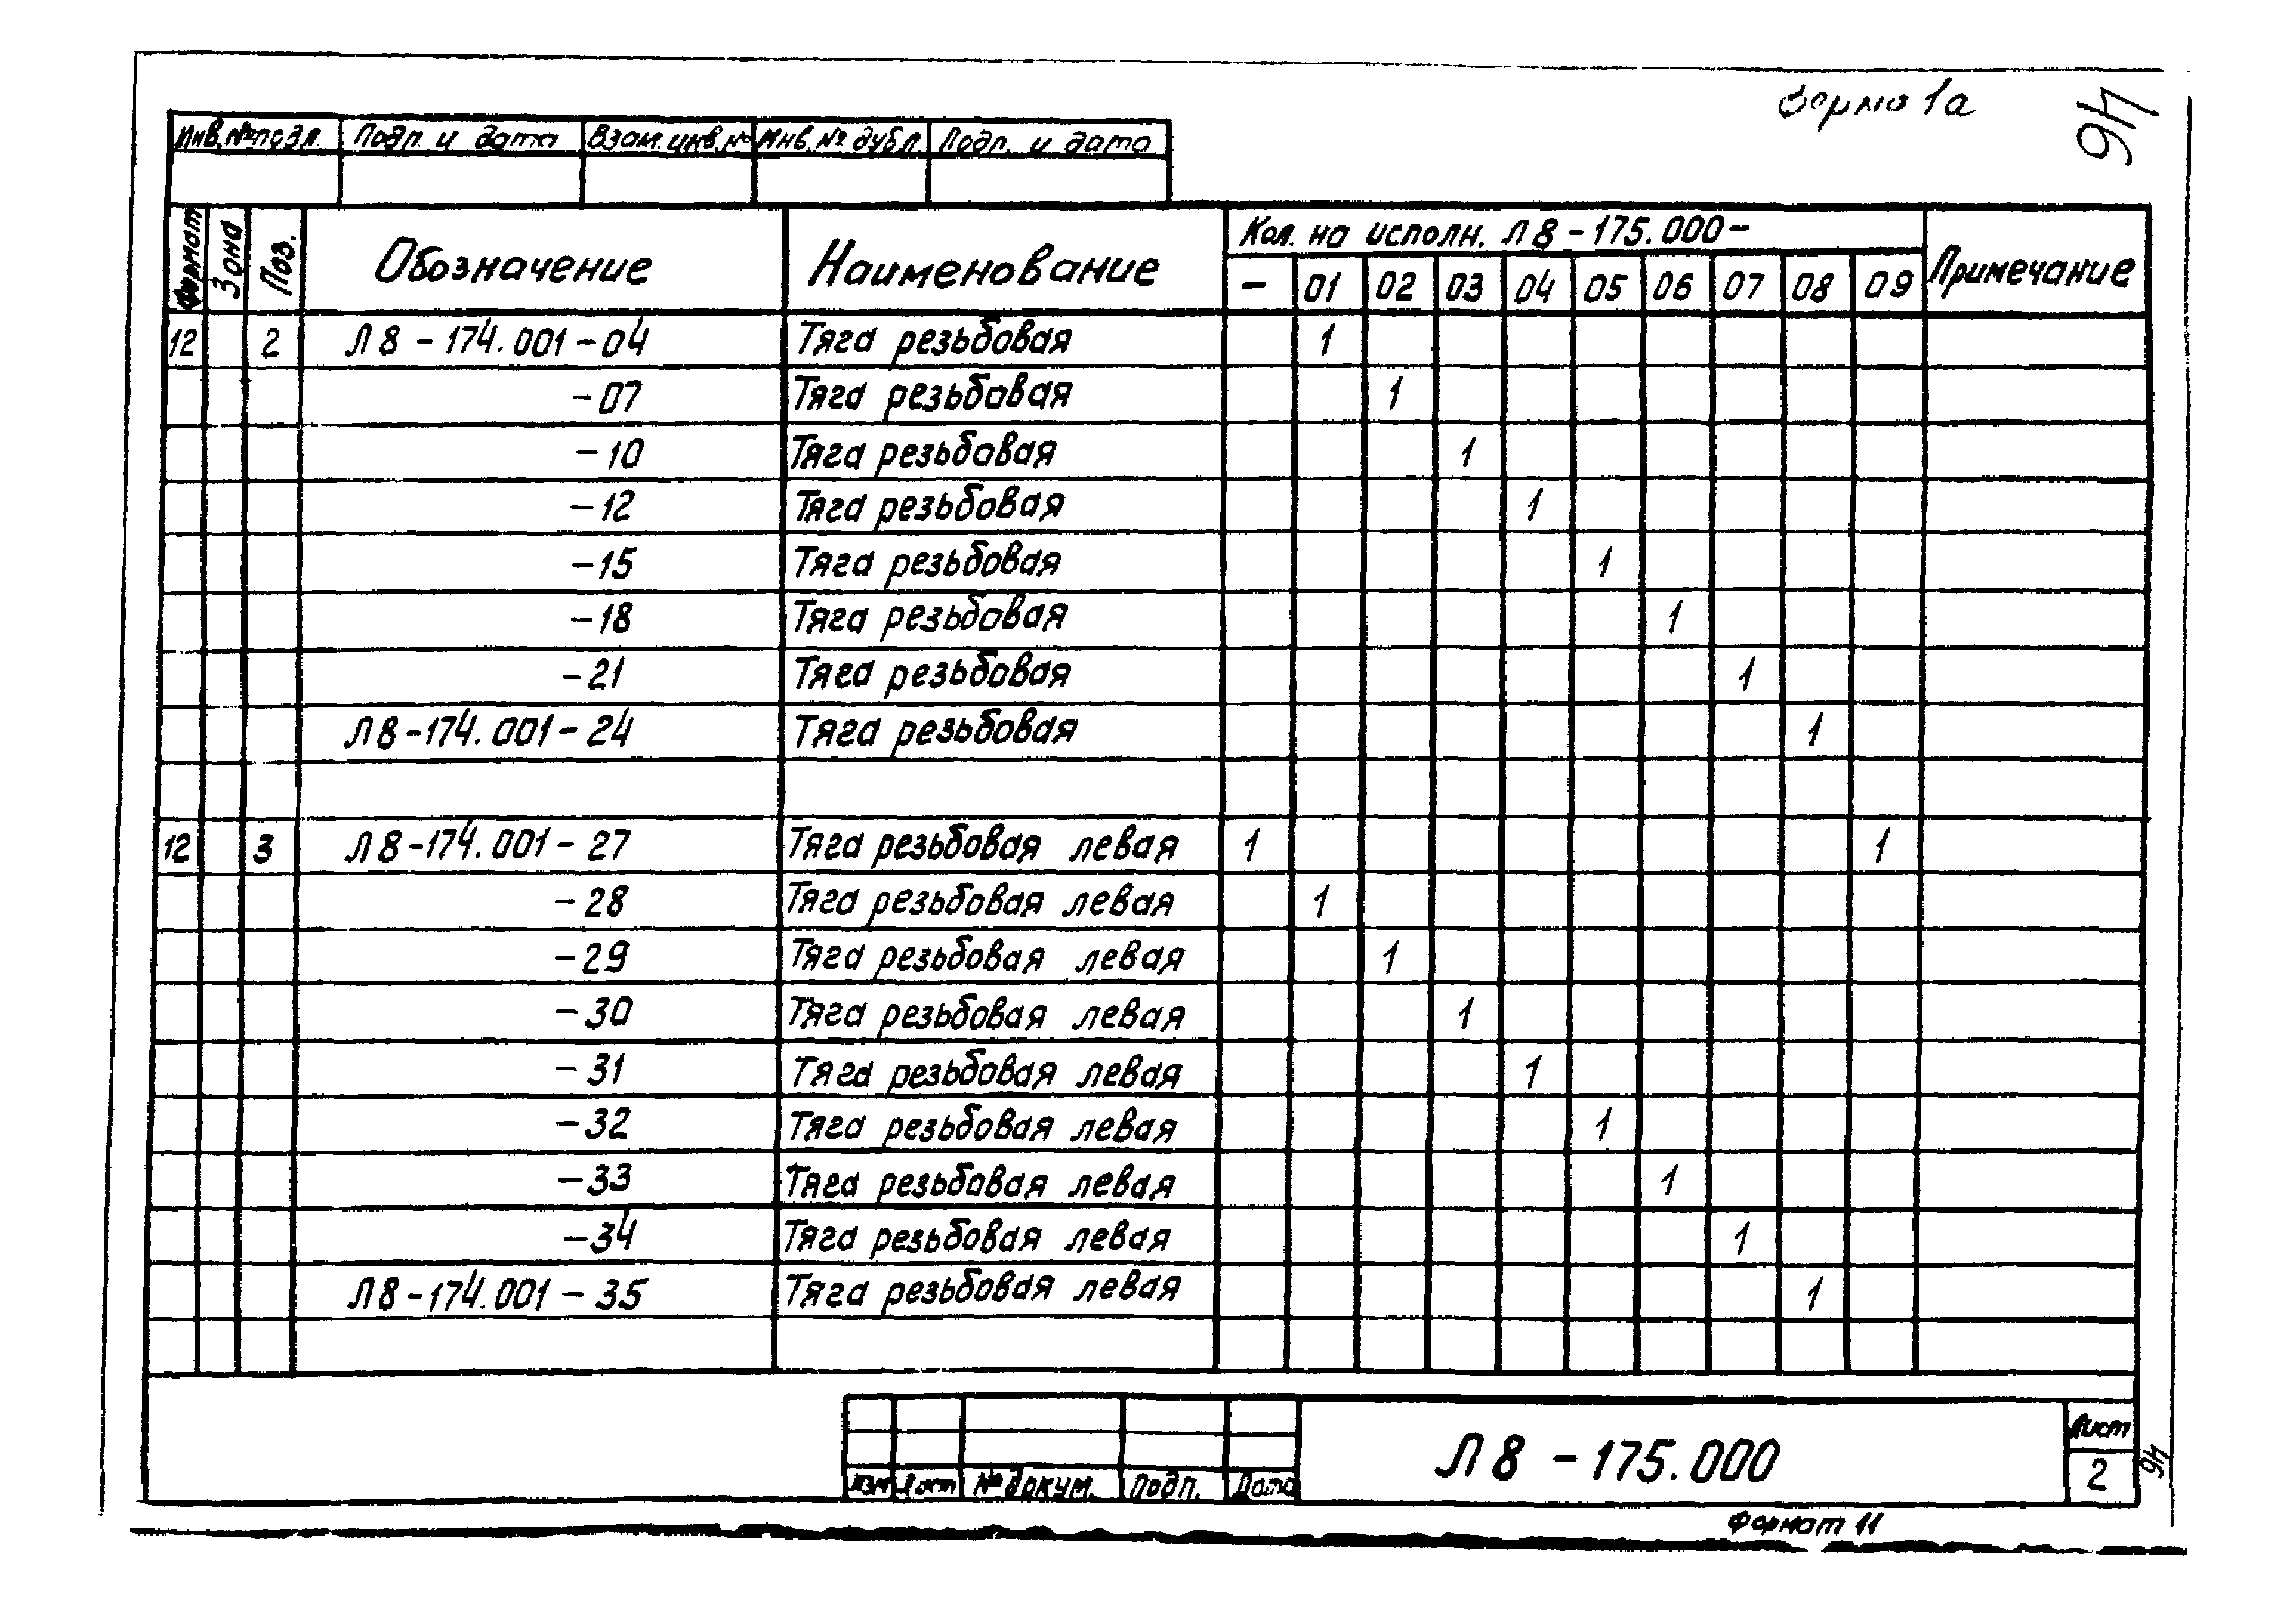 Форма 1а
46
Инв.№ подл. Подп. и дата Взам.инв.№ Инв.№ дубл. Подп. и дата
Формат Зона Поз. Обозначение Наименование Кол. на исполн. Л8-175.000- Примечание
- 01 02 03 04 05 06 07 08 09
12 2 Л8-174.001-04 Тяга резьбовая 1
-07 Тяга резьбовая 1
-10 Тяга резьбовая 1
-12 Тяга резьбовая 1
-15 Тяга резьбовая 1
-18 Тяга резьбовая 1
-21 Тяга резьбовая 1
Л8-174.001-24 Тяга резьбовая 1
12 3 Л8-174.001-27 Тяга резьбовая левая 1 1
-28 Тяга резьбовая левая 1
-29 Тяга резьбовая левая 1
-30 Тяга резьбовая левая 1
-31 Тяга резьбовая левая 1
-32 Тяга резьбовая левая 1
-33 Тяга резьбовая левая 1
-34 Тяга резьбовая левая 1
Л8-174.001-35 Тяга резьбовая левая 1
Изм Лист № докум. Подп. Дата
Л8-175.000
Лист
2
46
Формат 11